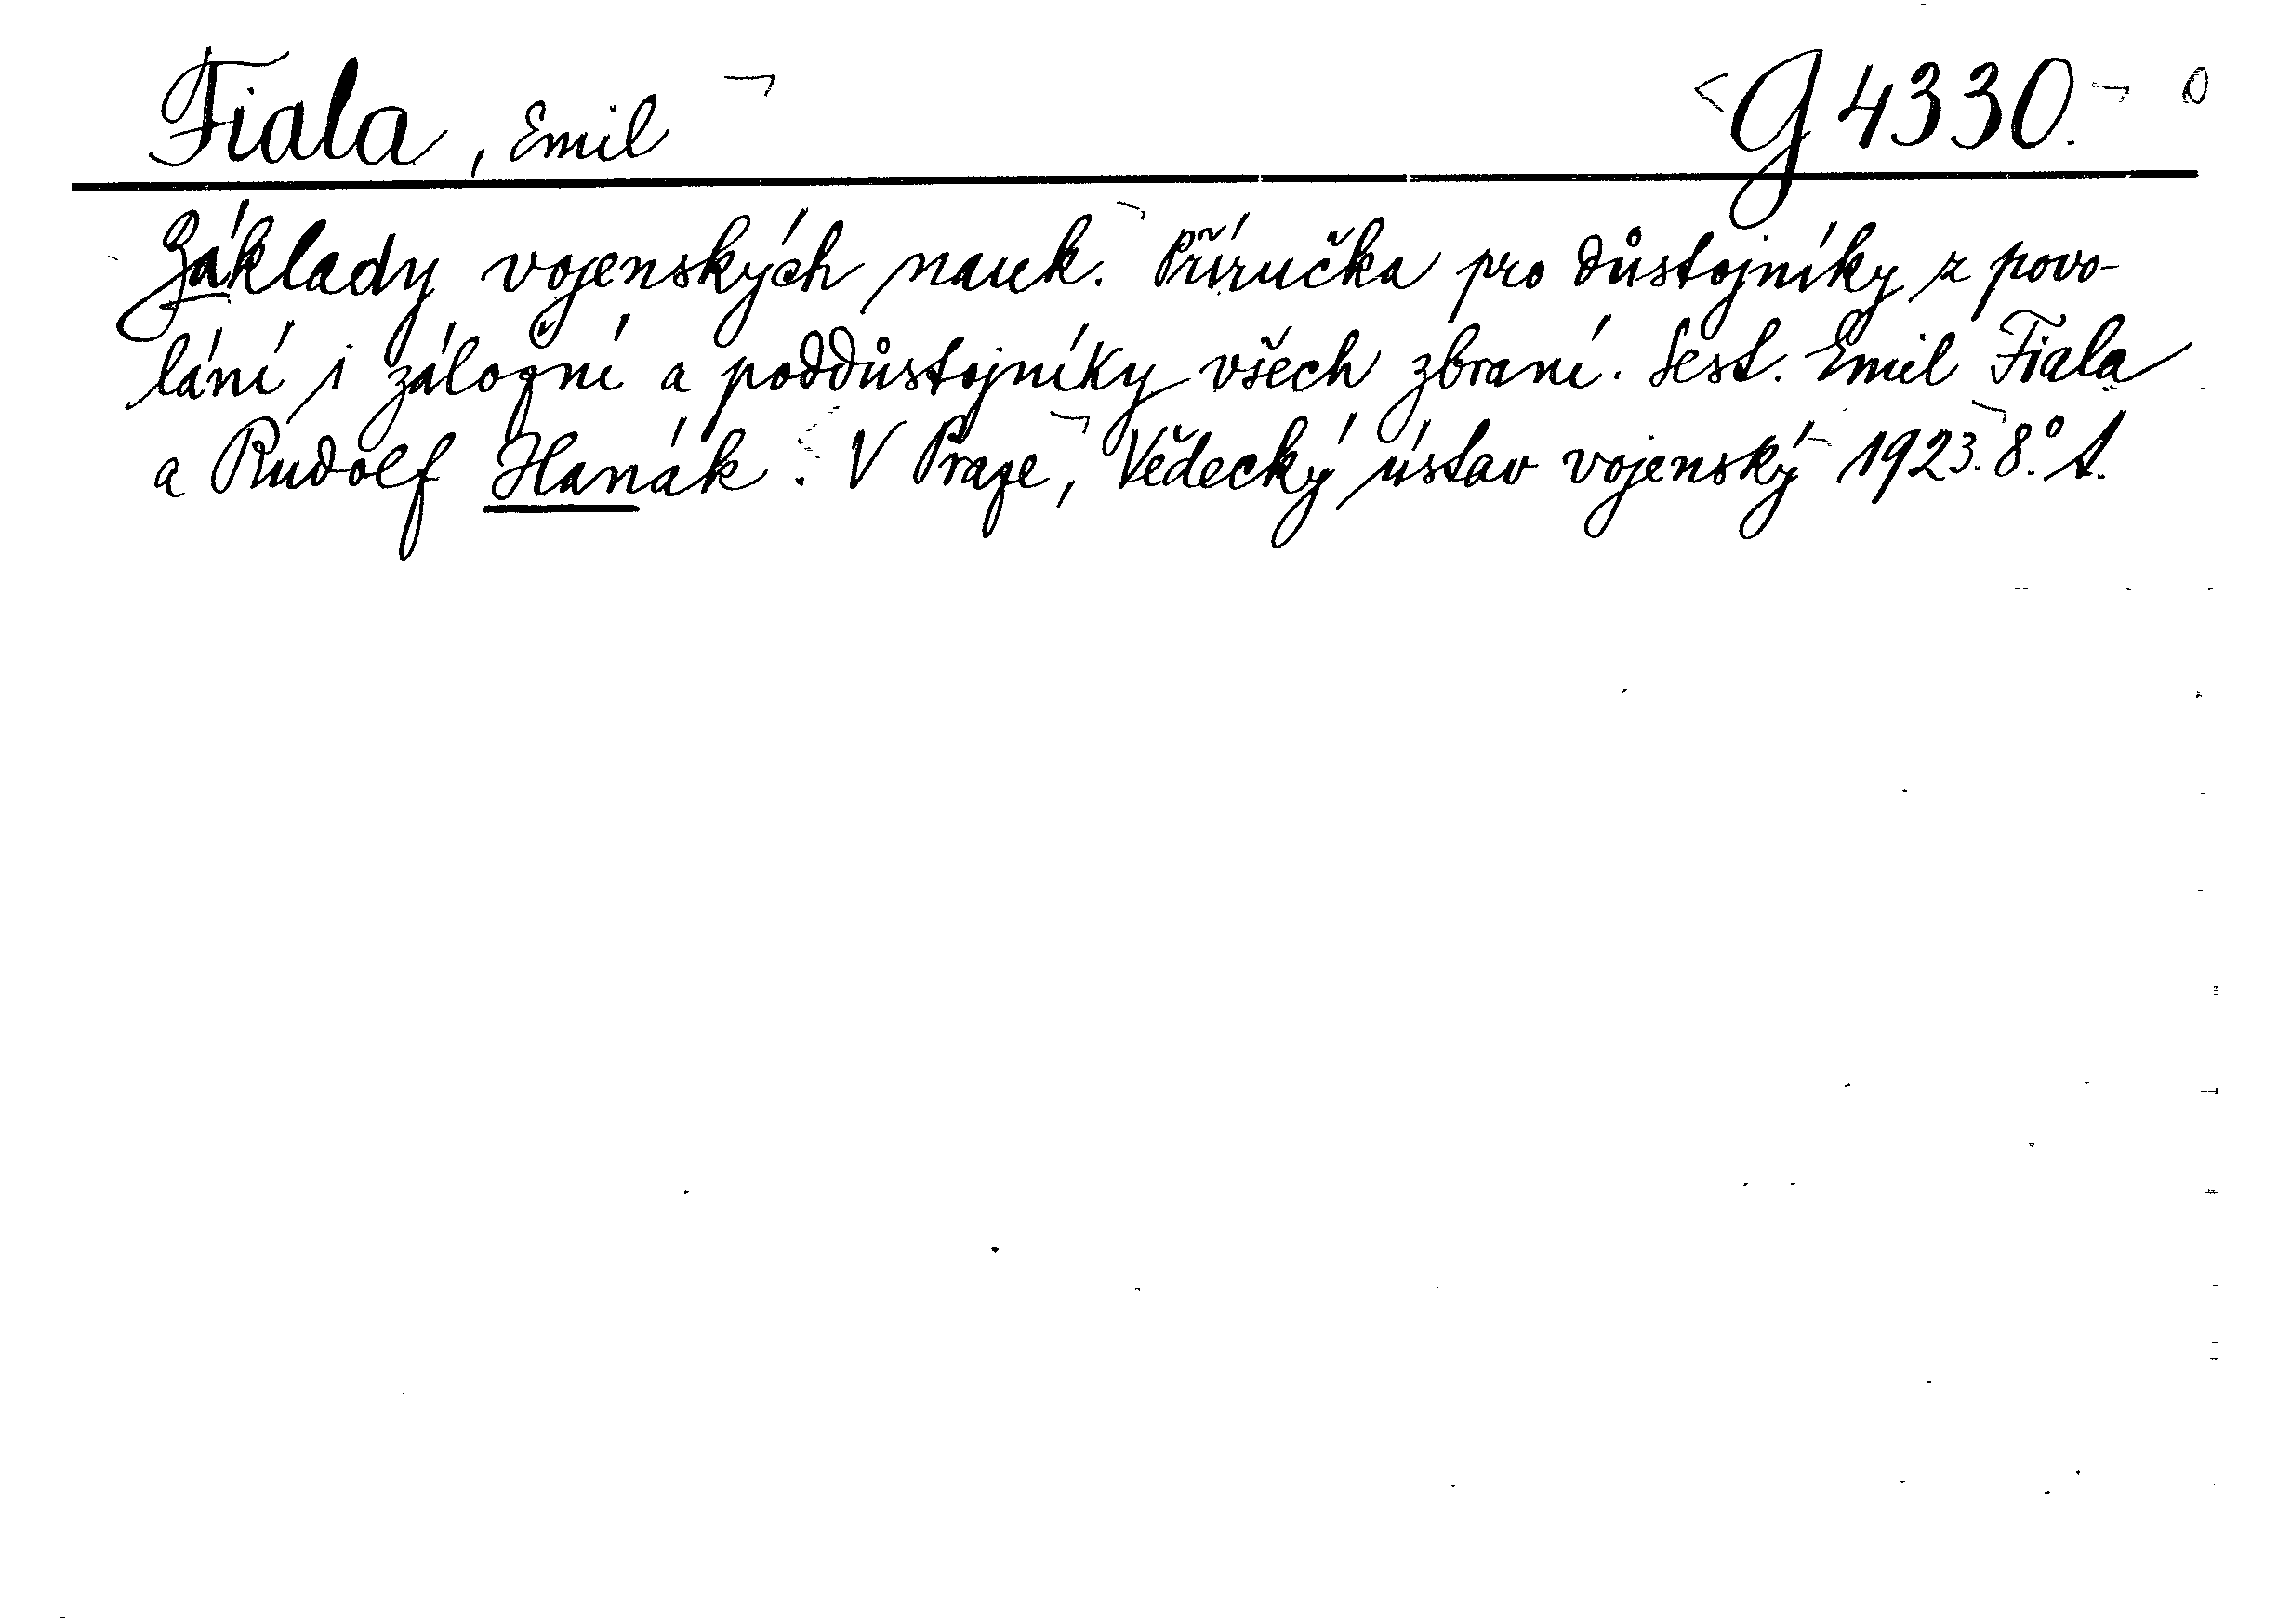 Fiala, Emil
G 4330.
Základy vojenských nauk. Příručka pro důstojníky z povo-
lání i záložní a poddůstojníky všech zbraní. Sest. Emil Fiala
a Rudolf Hanák. V Praze, Vědecký ústav vojenský 1923. 8.°